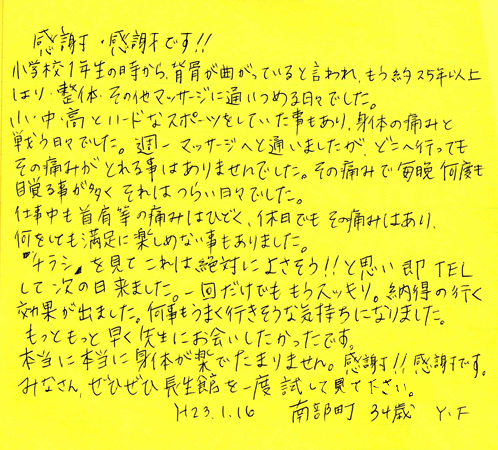 感謝・感謝です!!
小学校1年生の時から、背骨が曲がっていると言われ、もう約25年以上
はり・整体・その他マッサージに通いつめる日々でした。
小・中・高とハードなスポーツをしていた事もあり、身体の痛みと
戦う日々でした。週一マッサージへと通いましたが、どこへ行っても
その痛みがとれる事はありませんでした。その痛みで毎晩何度も
目覚る事が多く それはつらい日々でした。
仕事中も首肩等の痛みはひどく、休日でもその痛みはあり、
何をしても満足に楽しめない事もありました。
『チラシ』を見て これは絶対によさそう!!と思い即TEL
して次の日来ました。一回だけでももうスッキリ。納得の行く
効果が出ました。何事もうまく行きそうな気持ちになりました。
もっともっと早く先生にお会いしたかったです。
本当に本当に身体が楽でたまりません。感謝!!感謝です。
みなさん、ぜひぜひ長生館を一度試して見て下さい。
H23.1.16 南部町 34歳 Y.F